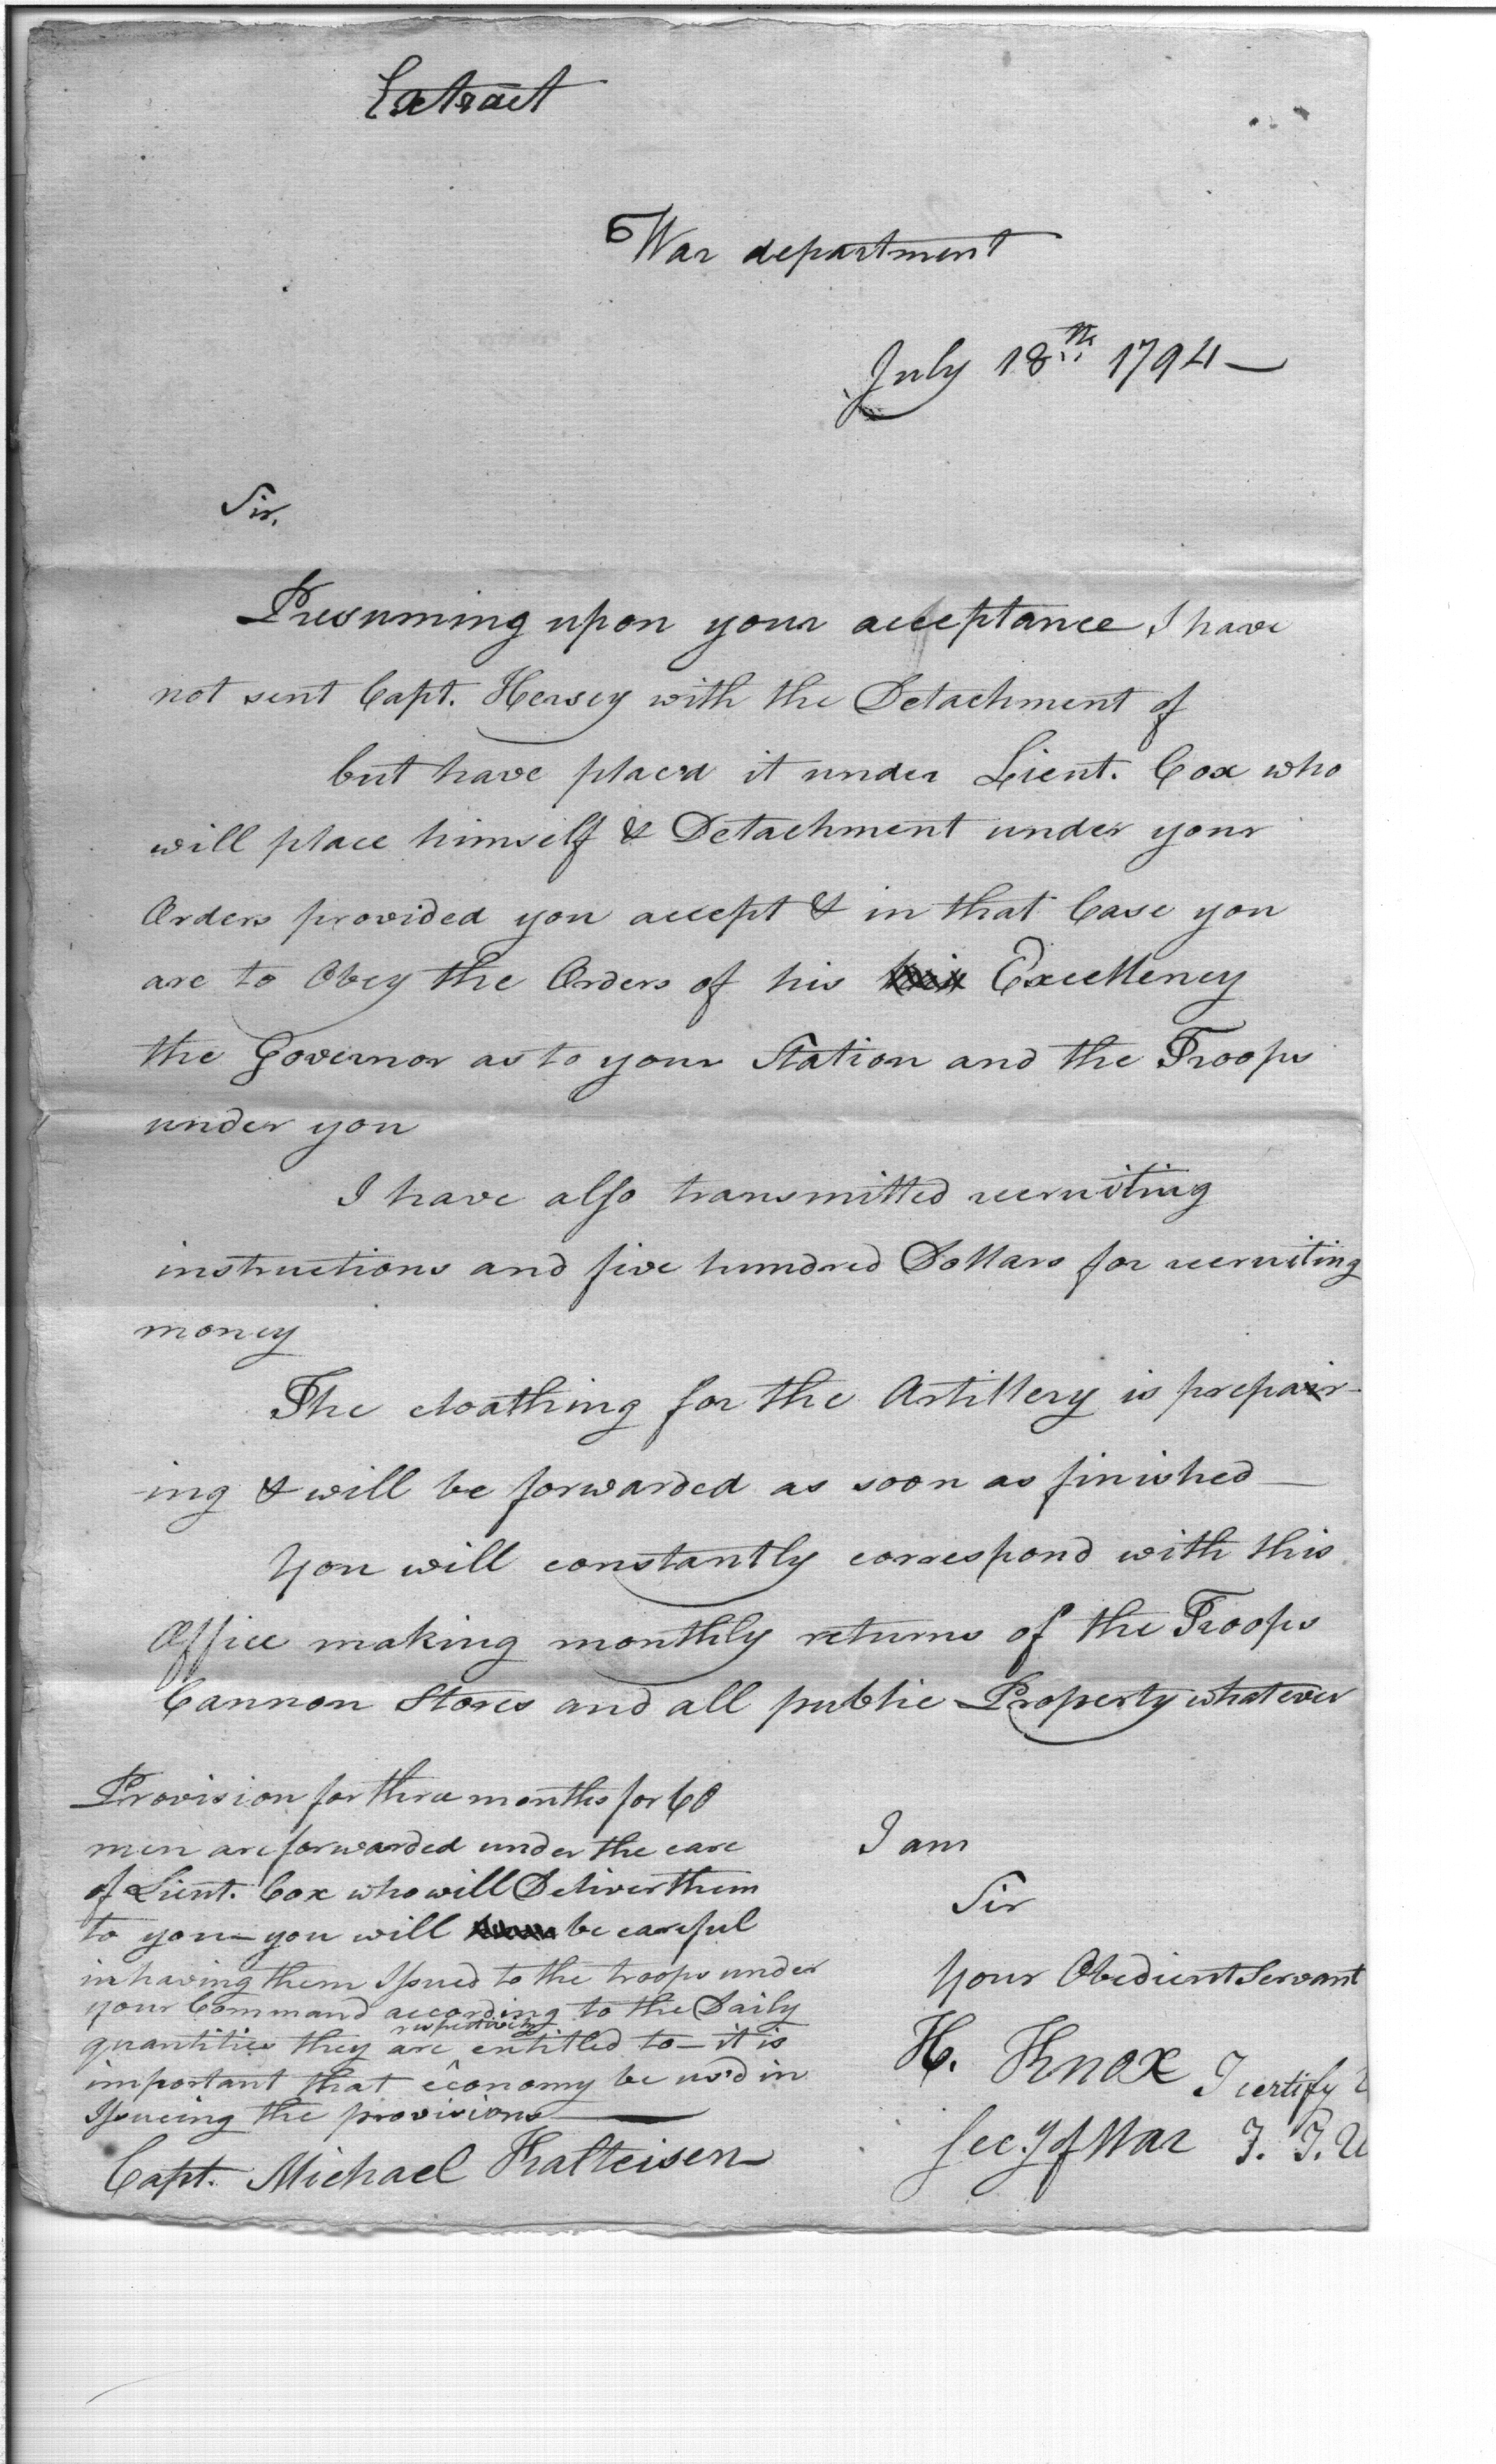 Extract
War department
July 18th 1794 —
Sir,
Presuming upon your acceptance, I have
not sent Capt. Hersey with the Detachment of
but have place'd it under Lieut. Cox who
will place himself & Detachment under your
Orders provided you accept & in that Case you
are to Obey the Orders of his Excellency
the Governor as to your Station and the Troops
under you
I have also transmitted recruiting
instructions and five hundred Dollars for recruiting
money
The cloathing for the Artillery is prepair-
-ing & will be forwarded as soon as finished —
You will constantly correspond with this
Office making monthly returns of the Troops
Cannon Stores and all public Property whatever
Provision for three months for 60
men are forwarded under the care
of Lieut. Cox who will Deliver them
to you — you will be careful
in having them Issued to the troops under
your Command according to the Daily
quantities they are respectively entitled to — it is
important that economy be us'd in
Issueing the provisions —
Capt. Michael Kalteisen
I am
Sir
Your Obedient Servant
H. Knox
Secy of War
I certify
J. T.